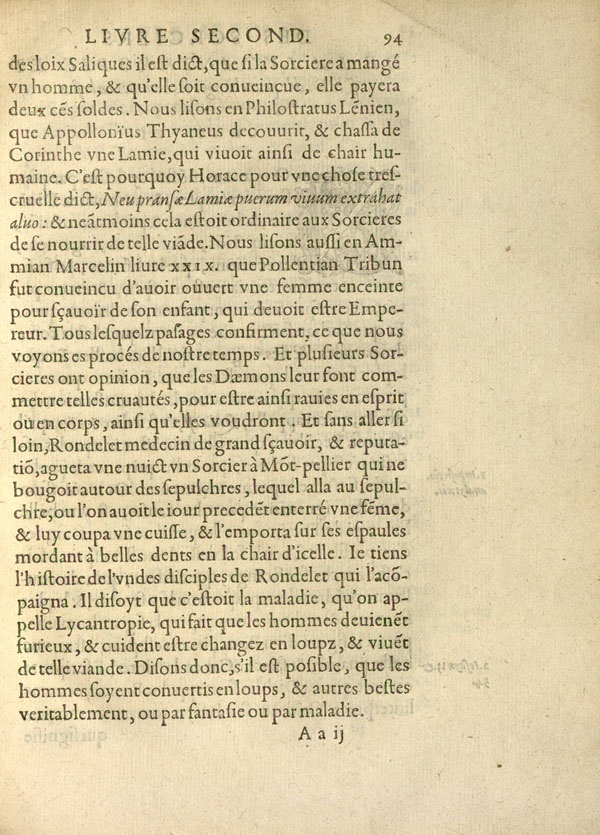 LIVRE SECOND. 94
des loix Saliques il est dict, que si la Sorciere a mangé
vn homme, & qu'elle soit conueincue, elle payera
deux cẽs soldes. Nous lisons en Philostratus Lẽnien,
que Appollonïus Thyaneus decouurit, & chassa de
Corinthe vne Lamie, qui viuoit ainsi de chair hu-
maine. C'est pourquoy Horace pour vne chose tres-
cruelle dict, Neu pransæ Lamiæ puerum viuum extrahat
aluo: & neãtmoins cela estoit ordinaire aux Sorcieres
de se nourrir de telle viãde. Nous lisons aussi en Am-
mian Marcelin liure XXIX. que Pollentian Tribun
fut conueincu d'auoir ouuert vne femme enceinte
pour sçauoïr de son enfant, qui deuoit estre Empe-
reur. Tous lesquelz pasages confirment, ce que nous
voyons es procés de nostre temps. Et plusieurs Sor-
cieres ont opinion, que les Dæmons leur font com-
mettre telles cruautés, pour estre ainsi rauies en esprit
ou en corps, ainsi qu'elles voudront. Et sans aller si
loin, Rondelet medecin de grand sçauoir, & reputa-
tiõ, agueta vne nuict vn Sorcier à Mõt-pellier qui ne
bougoit autour des sepulchres, lequel alla au sepul-
chre, ou l'on auoit le iour precedẽt enterré vne fẽme,
& luy coupa vne cuisse, & l'emporta sur ses espaules
mordant à belles dents en la chair d'icelle. Ie tiens
l'histoire de l'vn des disciples de Rondelet qui l'acõ-
paigna. Il disoyt que c'estoit la maladie, qu'on ap-
pelle Lycantropie, qui fait que les hommes deuienẽt
furieux, & cuident estre changez en loupz, & viuẽt
de telle viande. Disons donc, s'il est posible, que les
hommes soyent conuertis en loups, & autres bestes
veritablement, ou par fantasie ou par maladie.
A a ij